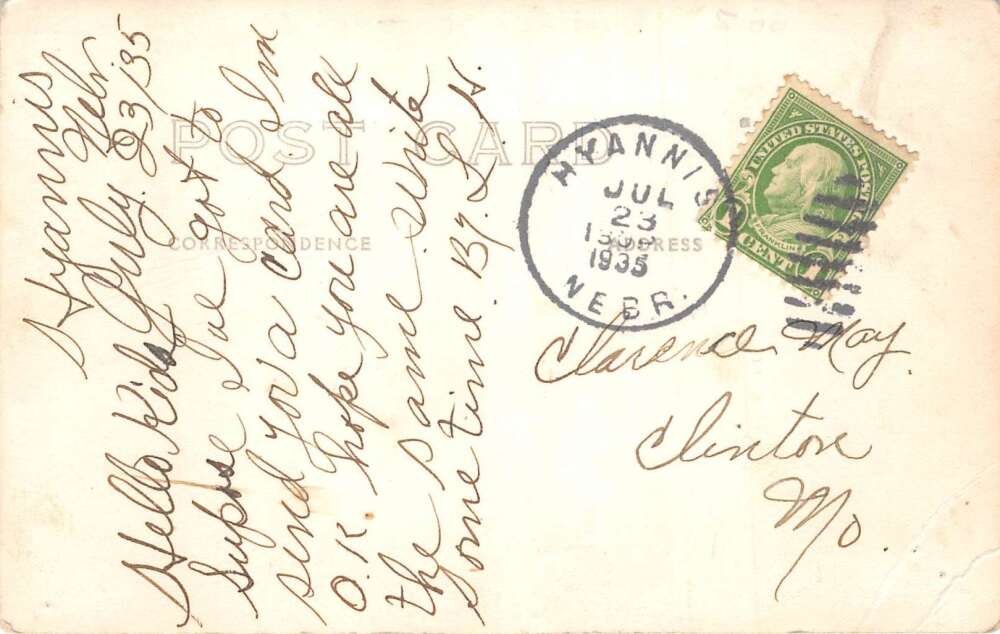 POST CARD
CORRESPONDENCE
ADDRESS
Hyannis
Nebr.
July. 23/35
Hello Kids
Supose I've got to
send you a card. I'm
O.K. hope you are all
the same. Write
some time. By. L. H.
HYANNIS
JUL
23
1935
NEBR.
UNITED STATES POSTAGE
FRANKLIN
1 CENT 1
Clarence May
Clinton
Mo.